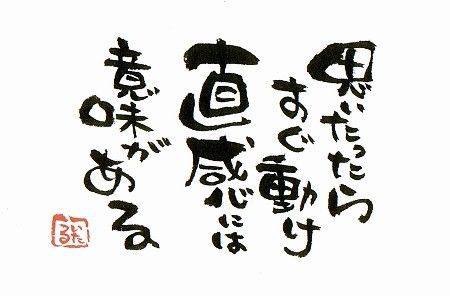 思いたったら
すぐ動け
直感には
意味が
ある
いたる